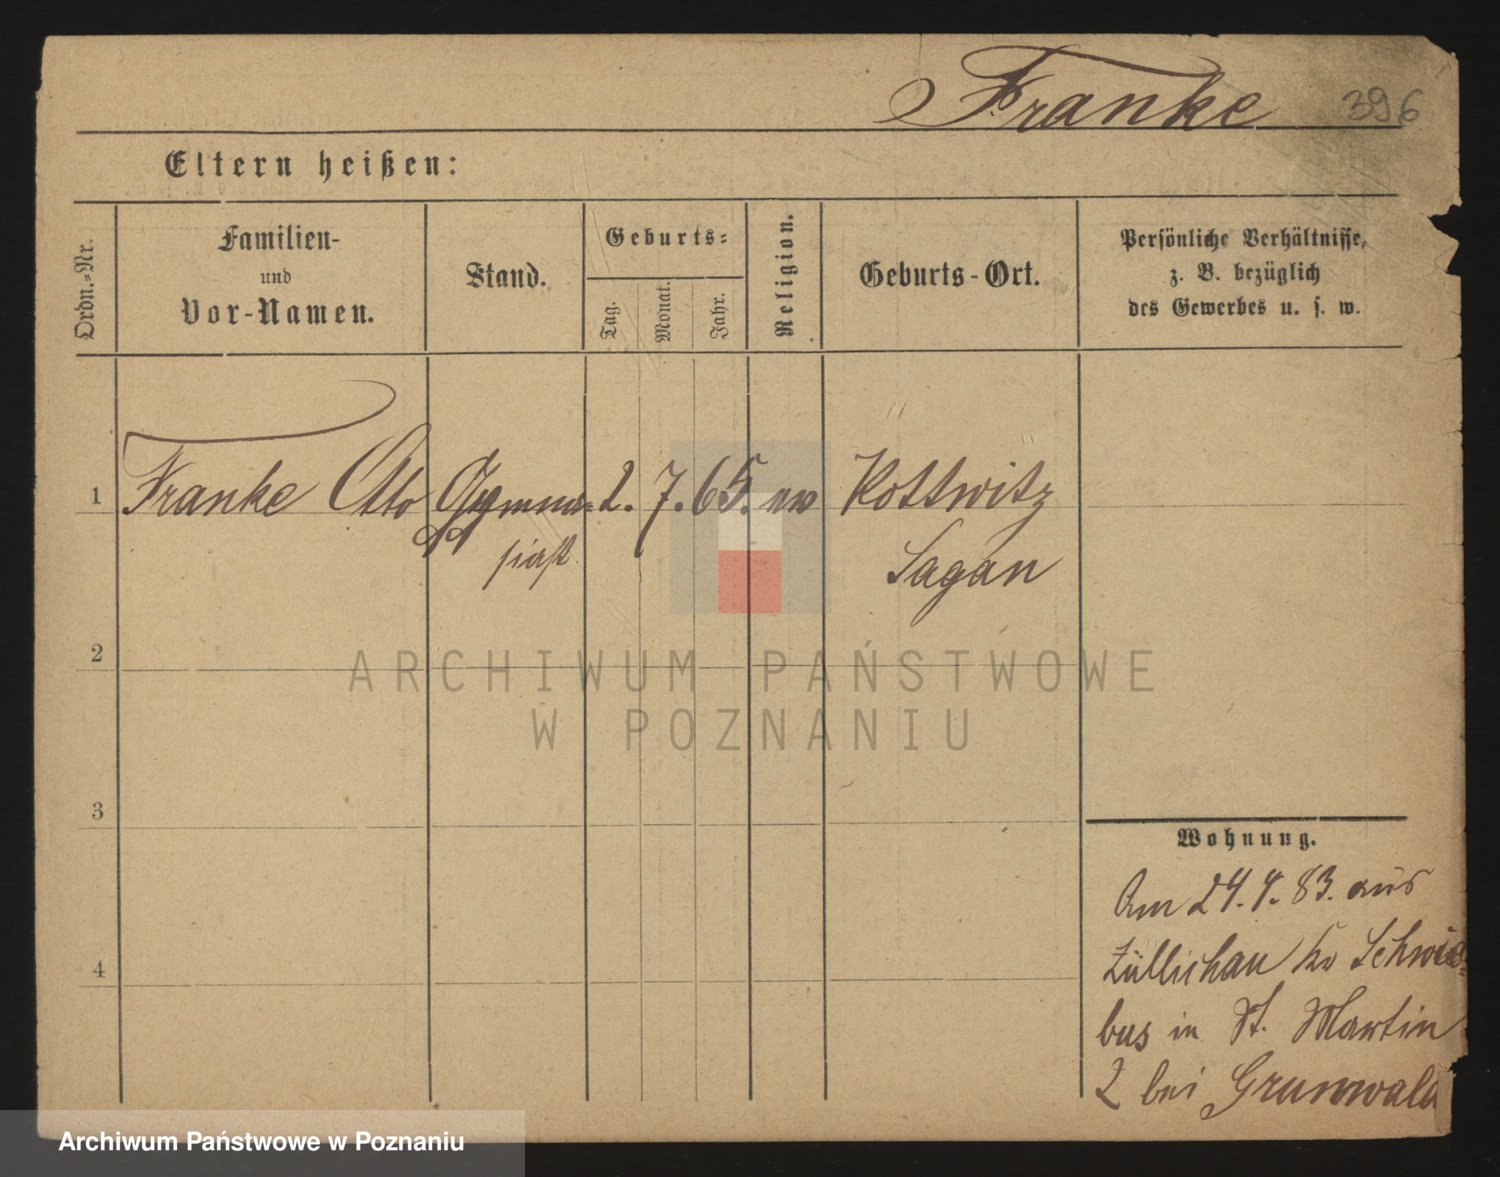 Franke 396
Eltern heißen:
Ordn.-Nr.
Familien-
und
Vor-Namen.
Stand.
Geburts-
Tag.
Monat.
Jahr.
Religion.
Geburts-Ort.
Persönliche Verhältnisse,
z. B. bezüglich
des Gewerbes u. s. w.
1 Franke Otto Gymna- 2. 7. 65. ev Kottwitz
siast Sagan
2
ARCHIWUM PAŃSTWOWE
W POZNANIU
3
Wohnung.
Am 24. 4. 83. aus
Züllichau Kr Schwie-
bus in St. Martin
2 bei Grunwald
4
Archiwum Państwowe w Poznaniu